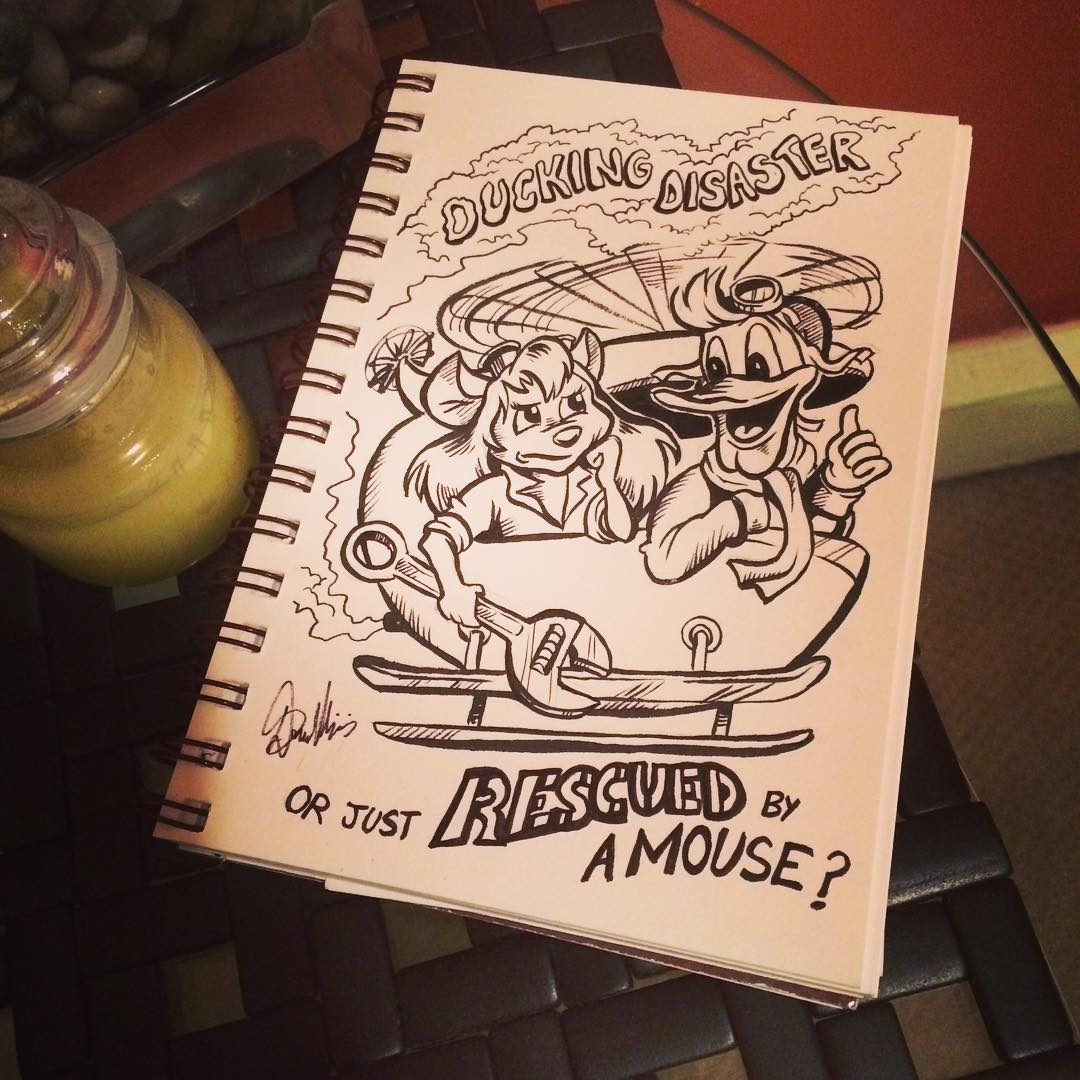 DUCKING DISASTER
OR JUST RESCUED BY
A MOUSE?